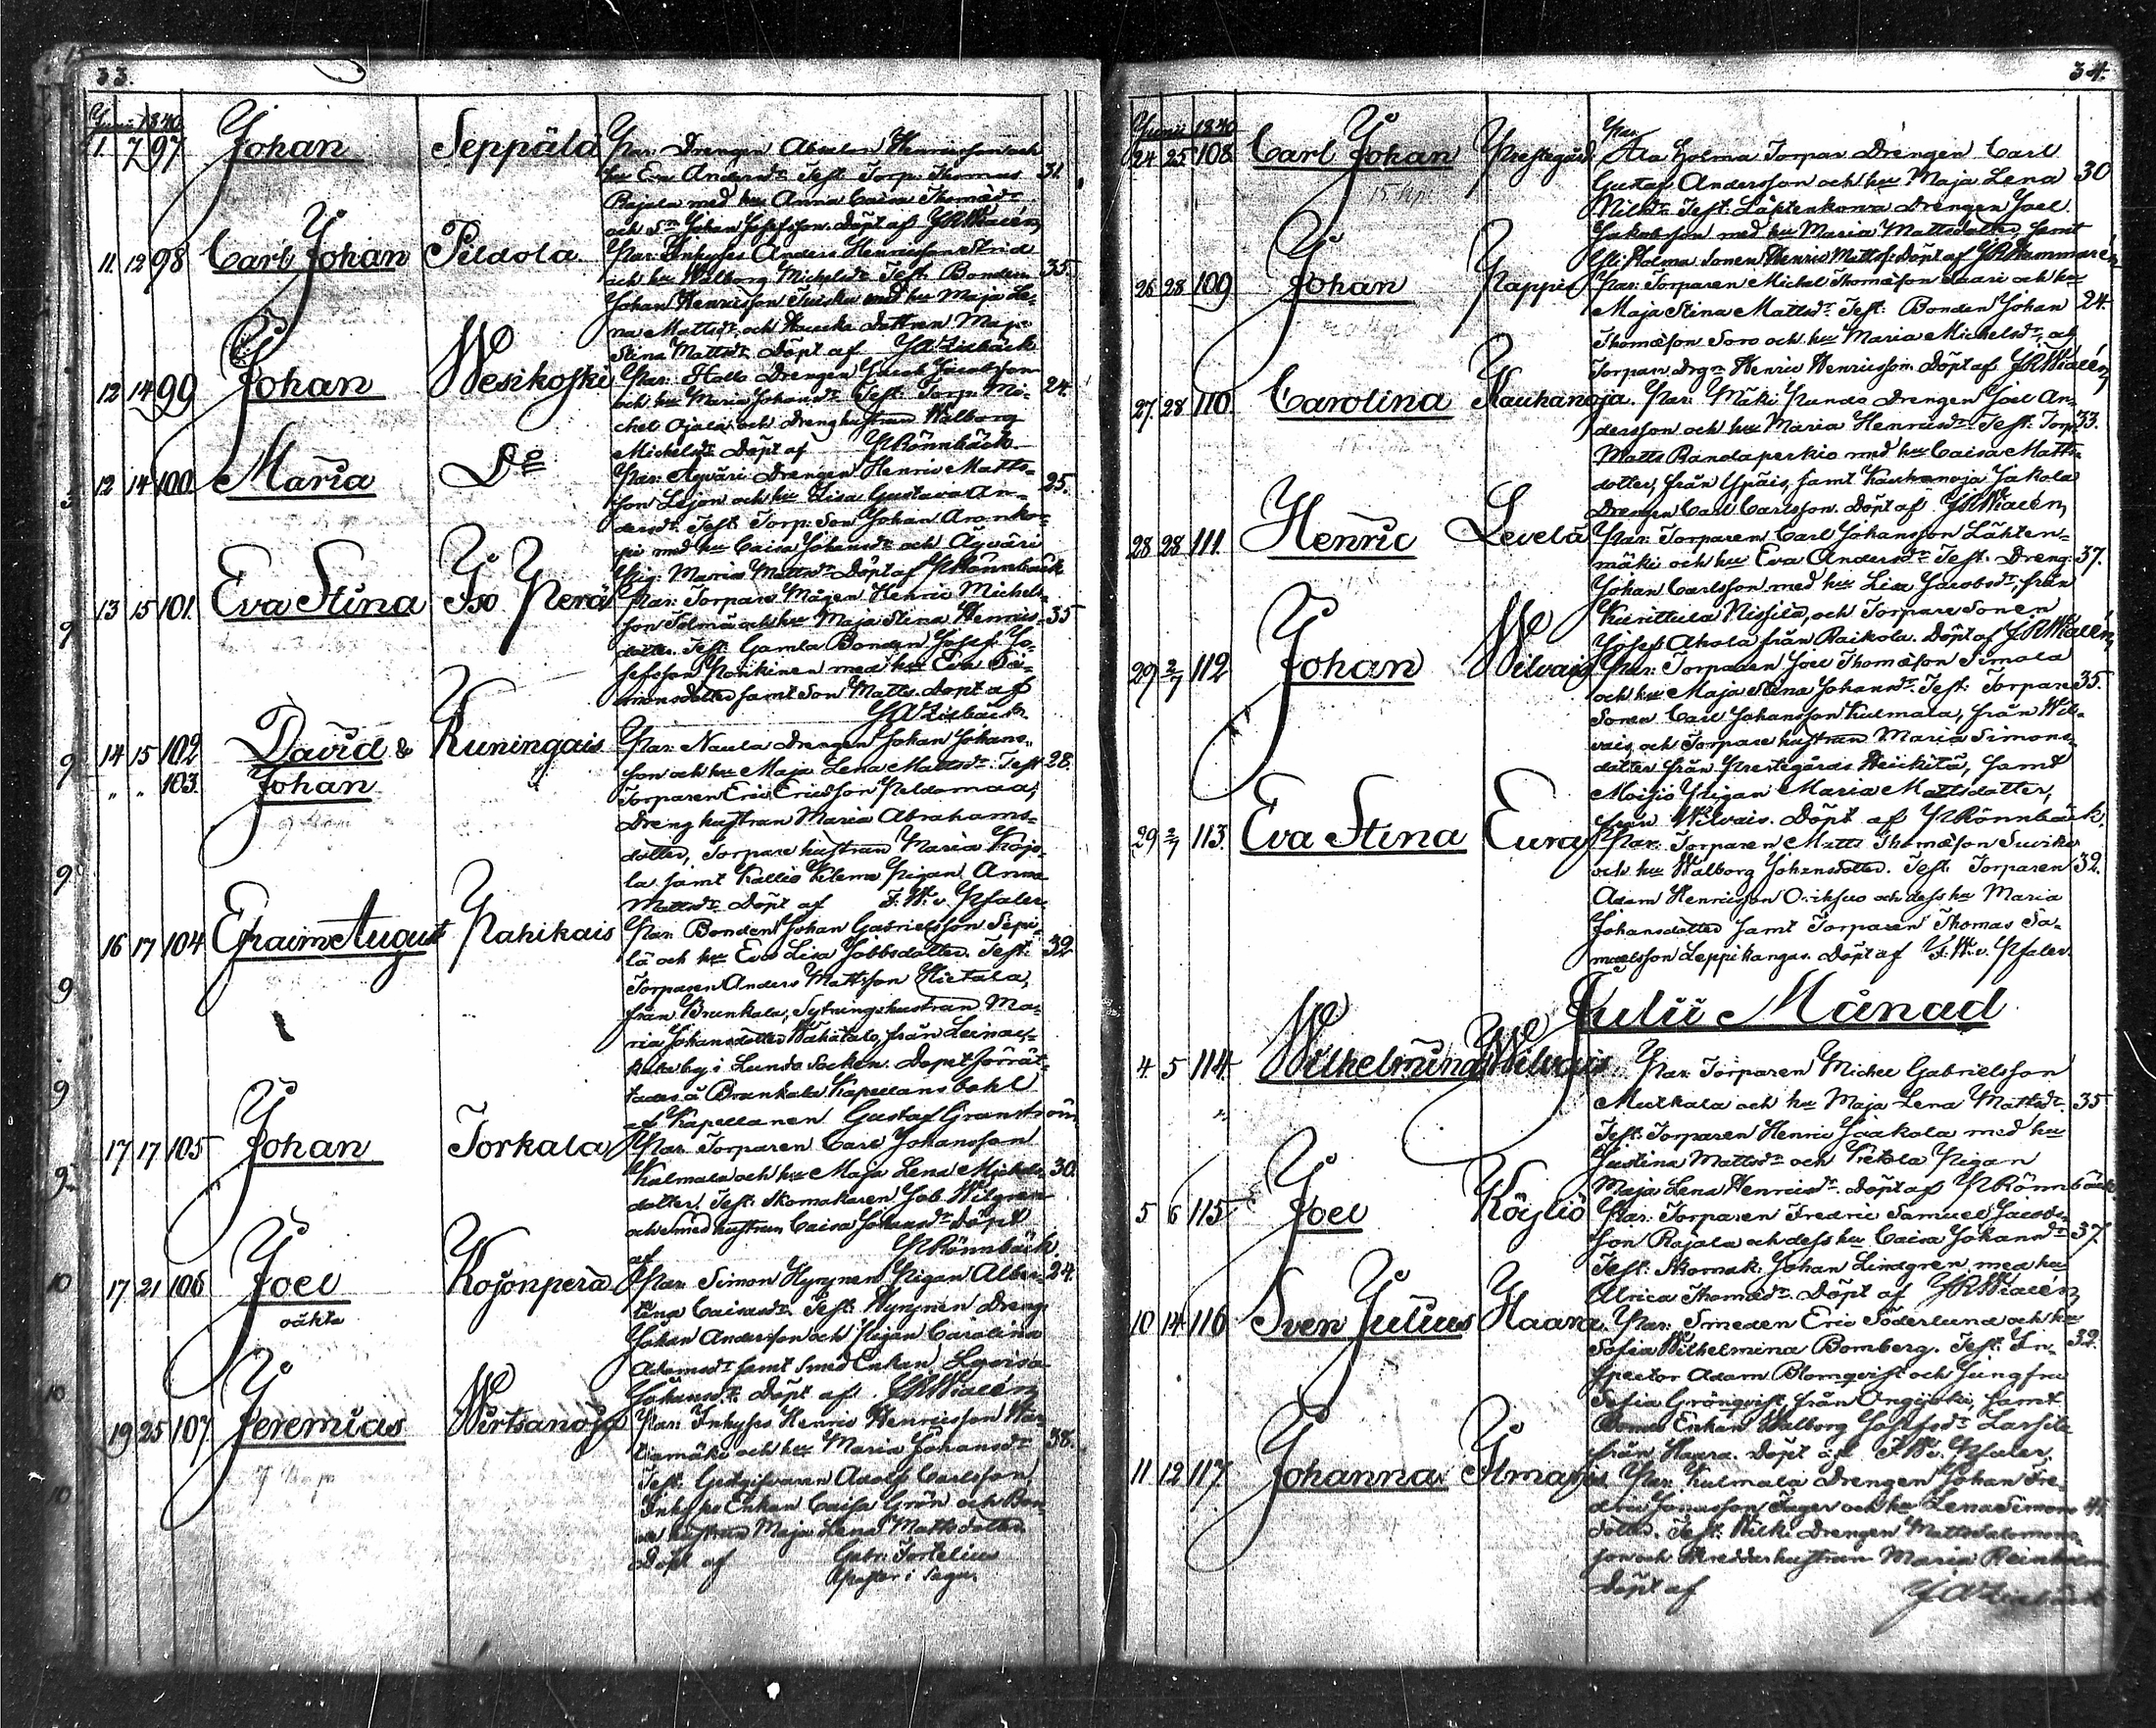 33.
Junii 1840
1. 7 97 Johan Seppälä Par. Drengen Absalon Henricsson och
hu Eva Andersdr Test. Torp. Thomas 31.
Rajala med hu Anna Caisa Thomædr
och Sn Johan Josefsson. Döpt af JRWialén
11. 12 98 Carl Johan Peldola Par. Inhyses Anders Henricsson Strid
och hu Walborg Michelsdr Test. Bonden 35.
Johan Henricsson Tuisku med hu Maja Le-
na Mattsdr, och dottren Maja
Stina Mattsdr Döpt af
12 14 99 Johan Wesikoski Par. Drengen Jacob Jacobsson 24.
och hu Maria Johansdr Test. Torp. Mi-
chel Ojala, och Drenghustrun Walborg
Michelsdr Döpt af PRönnbäck
12 14 100. Maria Do Par. Äyväri Drengen Henric Matts-
son Lejon och hu Lisa Gustava An- 25.
dersdr. Test. Torp. Son Johan
med hu Caisa Johansdr och Äyväri
Pig. Maria Mattsdr Döpt af PRönnbäck
13 15 101. Eva Stina Iso Perä Par. Torpare Mågen Henric Michels-
son och hu Maja Stina Henrics- 35
dotter. Test. Gamla Bonden Josef Jo-
sefsson med hu Eva Si-
monsdotter samt Son Matts. Döpt af
14 15 102 David & Kuningais Par. Naula Drengen Johan Johans-
son och hu Maja Lena Mattsdr Test 28.
" " 103. Johan Torparen Eric Ericsson Peldomaa,
Drenghustrun Maria Abrahams-
dotter, Torpare hustrun Maria Kojo-
la samt Kallio Pigan Anna
Mattsdr Döpt af F.W. v. Pfaler.
16 17 104 Efraim August Pahikais Par. Bonden Johan Gabrielsson Sepi-
lä och hu Eva Lisa Jobbsdotter. Test: 32
Torparen Anders Mattsson Hietala,
från Brunkala, Sytningshustrun Ma-
ria Johansdotter Wähätalo, från
by i Lundo Socken. Döpet förrät-
tades å Brunkala Kapellansbohl
af Kapellanen Gustaf Granström
17 17 105 Johan Torkala Par. Torparen Carl Johansson
Kulmala och hu Maja Lena Michels- 30.
dotter. Test. Skomakaren Job Wilgren
och med hustrun Caisa Johansdr Döpt
af PRönnbäck
17 21 106 Joel Kojonperä Par. Simon Hyrynen Pigan Alber- 24.
oäkta tina Caisasdr. Test. Hyrynen Dreng
Johan Andersson och Pigan Carolina
Adamsdr samt Smed Enkan Lovisa
Johansdr. Döpt af JRWialén
19 25 107 Jeremias Wirtsanoja Par. Inhyses Henric Henricsson
och hu Maria Johansdr 38.
Test. Adolf Carlsson
Inhyses Enkan Caisa Grön och Bon-
de hustrun Maja Lena Mattsdotter.
Döpt af Gabr. Tortelius
Pastor i Sagu.
34.
Junii 1840
24 25 108 Carl Johan Prestegård Par. Ala Holma Torpar Drengen Carl
Gustaf Andersson och hu Maja Lena 30
Test. Läptenkorva Drengen Joel
Jakobsson med hu Maria Mattsdotter samt
Yli Holma Sonen Henric Mattss. Döpt af
26 28 109 Johan Pappis Par. Torparen Michel Thomæson Saari och hu
Maja Stina Mattsdr Test. Bonden Johan 24.
Thomæson Soro och hu Maria Michelsdr, af
Torpare Drgn Henric Henricsson. Döpt af JRWialén
27. 28 110. Carolina Kauhanoja. Par. Mäki Punda Drengen Joel An-
dersson och hu Maria Henricsdr. Test. Torp 33.
Matts Randaperkio med hu Caisa Matts-
dotter, från Ypäis, samt Kauhanoja Jakola
Drengen Carl Carlsson. Döpt af JRWialén
28 28 111. Henric Levelä Par. Torparen Carl Johansson Lähten-
mäki och hu Eva Andersdr Test. Dreng 37.
Johan Carlsson med hu Lisa Jacobsdr, från
Kurittula Nissilä, och Torpare Sonen
Josef Ahola från Raikola. Döpt af JRWialén
29 2/7 112 Johan Wilvais Par. Torparen Joel Thomæson Simola
och hu Maja Stina Johansdr. Test. Torpare 35.
Sonen Carl Johansson Kulmala, från Wil-
vais, och Torpare hustrun Maria Simons-
dotter från Prestegårds Heickilä, samt
Moisio Pigan Maria Mattsdotter,
från Wilvais. Döpt af PRönnbäck.
29 2/7 113. Eva Stina Eura Par. Torparen Matts Thomæson Suviko
och hu Walborg Johansdotter. Test. Torparen 32.
Adam Henricsson Orihsuo och dess hu Maria
Johansdotter samt Torparen Thomas Sa-
muelsson Leppikangas. Döpt af F.W. v. Pfaler.
Julii Månad
4 5 114. Wilhelmina Wilvais Par. Torparen Michel Gabrielsson
och hu Maja Lena Mattsdr. 35
Test. Torparen Henric Jaakola med hu
Justina Mattsdr och Pigan
Maja Lena Henricsdr. Döpt af PRönnbäck
5 6 115 Joel Köyliö Par. Torparen Fredric Samuel Jacobs-
son Rajala och dess hu Caisa Johansdr 37.
Test. Skomak. Johan Lindgren med hu
Ulrica Thomædr. Döpt af JRWialén
10 14 116 Sven Julius Haara. Par. Smeden Eric Söderlund och hu
Sofia Wilhelmina Bomberg. Test. In- 32.
spector Adam Blomqvist och Jungfru
Sofia Grönqvist, från samt
Bonde Enkan Walborg Josefsdr Lassila
från Haara. Döpt af F.W.v. Pfaler.
11 12 117. Johanna Par. Kulmala Drengen Johan Fre-
dric Jonasson Jager och hu Lena Simons-
dotter. Test. Drengen Matts Salomons-
son och Skreddar hustrun Maria
Döpt af